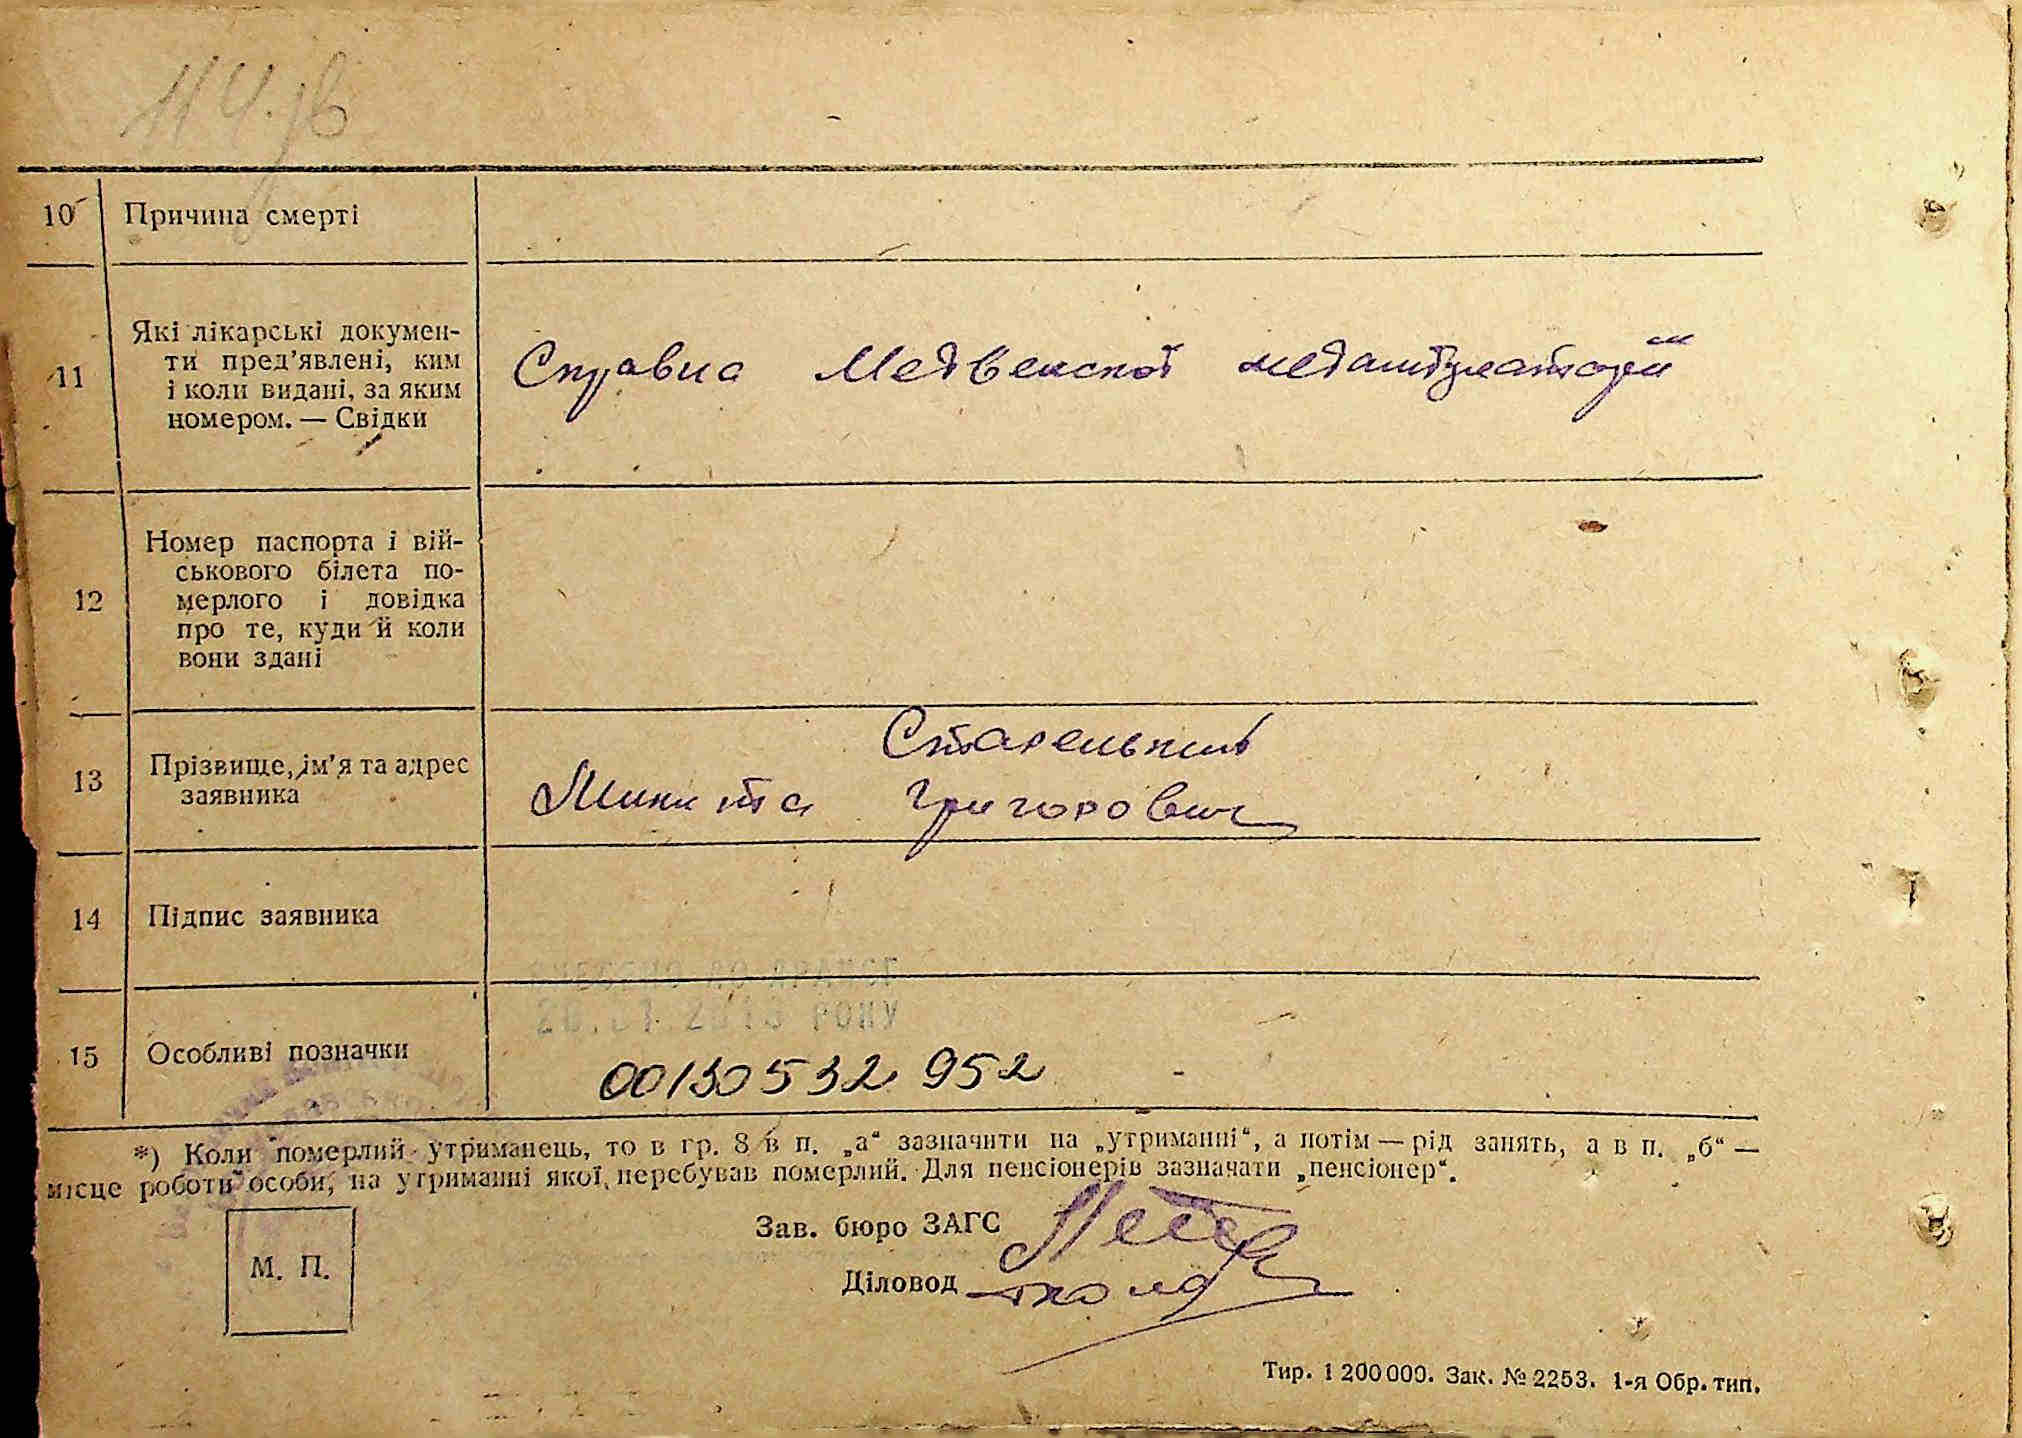 114.
10 Причина смерті
11 Які лікарські докумен-
ти пред'явлені, ким
і коли видані, за яким
номером. — Свідки
Справка Медвенской
12 Номер паспорта і вій-
ськового білета по-
мерлого і довідка
про те, куди й коли
вони здані
13 Прізвище, ім'я та адрес
заявника
Старенький
Микита Григорович
14 Підпис заявника
15 Особливі позначки
РОКУ
00130532952
*) Коли померлий утриманець, то в гр. 8 в п. „а“ зазначити на „утриманні“, а потім — рід занять, а в п. „б“ —
місце роботи особи, на утриманні якої перебував померлий. Для пенсіонерів зазначати „пенсіонер“.
Зав. бюро ЗАГС
Діловод
М. П.
Тир. 1 200 000. Зак. № 2253. 1-я Обр. тип.